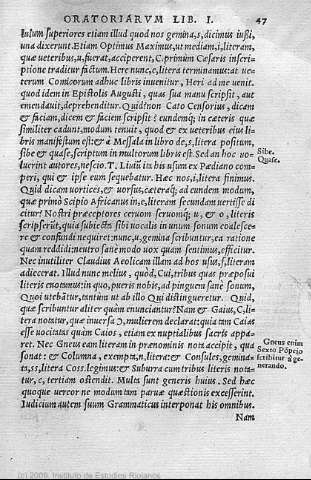 ORATORIARVM LIB. I. 47
Intum superiores etiam illud quod nos gemina, s, dicimus iußi,
una dixerunt. Etiam Optimus Maximus, ut mediam, i, literam,
quæ ueteribus, u, fuerat, acciperent, C. primùm Cæsaris inscri-
ptione traditur factum. Here nunc, e, litera terminamus: at ue-
terum Comicorum adhuc libris inuenitur, Heri ad me uenit.
quod idem in Epistolis Augusti, quas sua manu scripsit, aut
emendauit, deprehenditur. Quid? non Cato Censorius, dicam
& faciam, dicem & faciem scripsit: eundemq; in cæteris quæ
similiter cadunt, modum tenuit, quod & ex ueteribus eius li-
bris manifestum est: & à Messala in libro de, s, litera positum,
sibe & quase, scriptum in multorum libris est. Sed an hoc uo-
luerint autores, nescio. T. Liuiũ in his usum ex Pædiano com-
peri, qui & ipse eum sequebatur. Hæc nos, i, litera finimus.
Quid dicam uortices, & uorsus, cæteraq; ad eundem modum,
quæ primò Scipio Africanus in, e, literam secundam uertisse di
citur? Nostri præceptores ceruom seruomq; u, & o, literis
scripserũt, quia subiecta sibi uocalis in unum sonum coalesce-
re & confundi nequiret: nunc, u, gemina scribuntur, ea ratione
quam reddidi: neutro sanè modo uox quam sentimus, efficitur.
Nec inutiliter Claudius Aeolicam illam ad hos usus, f, literam
adiecerat. Illud nunc melius, quòd, Cui, tribus quas præposui
literis enotamus: in quo, pueris nobis, ad pinguem sanè sonum,
Quoi utebãtur, tantùm ut ab illo Qui distingueretur. Quid,
quæ scribuntur aliter quàm enunciantur? Nam & Gaius, C, li-
tera notatur, quæ inuersa Ɔ, mulierem declarat: quia tam Caias
esse uocitatas quàm Caios, etiam ex nuptialibus sacris appa-
ret. Nec Gneus eam literam in prænominis nota accipit, qua
sonat: & Columna, exempta, n, litera: & Consules, gemina-
ta, ss, litera Coss. legimus: & Suburra cum tribus literis nota-
tur, c, tertiam ostendit. Multa sunt generis huius. Sed hæc
quoque uereor ne modum tam paruæ quæstionis excesserint.
Iudicium autem suum Grammaticus interponat his omnibus.
Nam
Sibe.
Quase.
Gneus enim
Sexto Põpeio
scribitur à ge-
nerando.
(c) 2009, Instituto de Estudios Riojanos